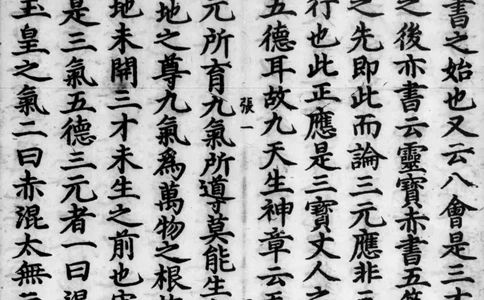 書之始也又云八會是三才
之後亦書云靈寶赤書五篇
之先即此而論三元應非三
行也此正應是三寶丈人之
五德耳故九天生神章云天
張一
元所育九氣所導莫能生
地之尊九氣為萬物之根故
地未開三才未生之前也宋
是三氣五德三元者一曰混
玉皇之氣二曰赤混太無元